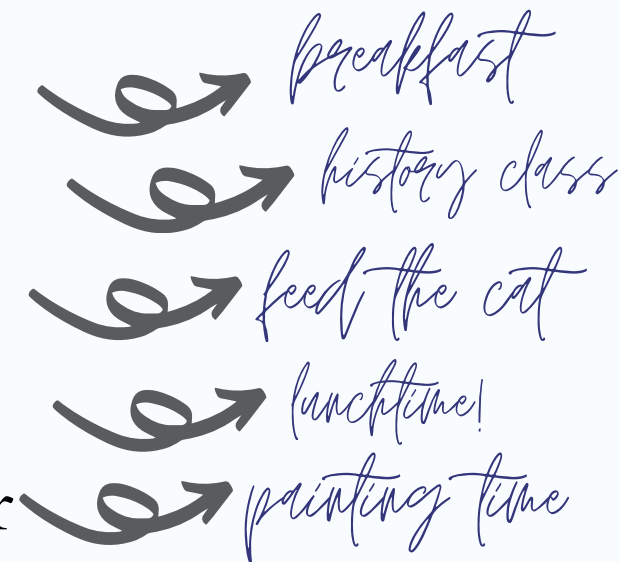 breakfast
history class
feed the cat
lunchtime!
painting time